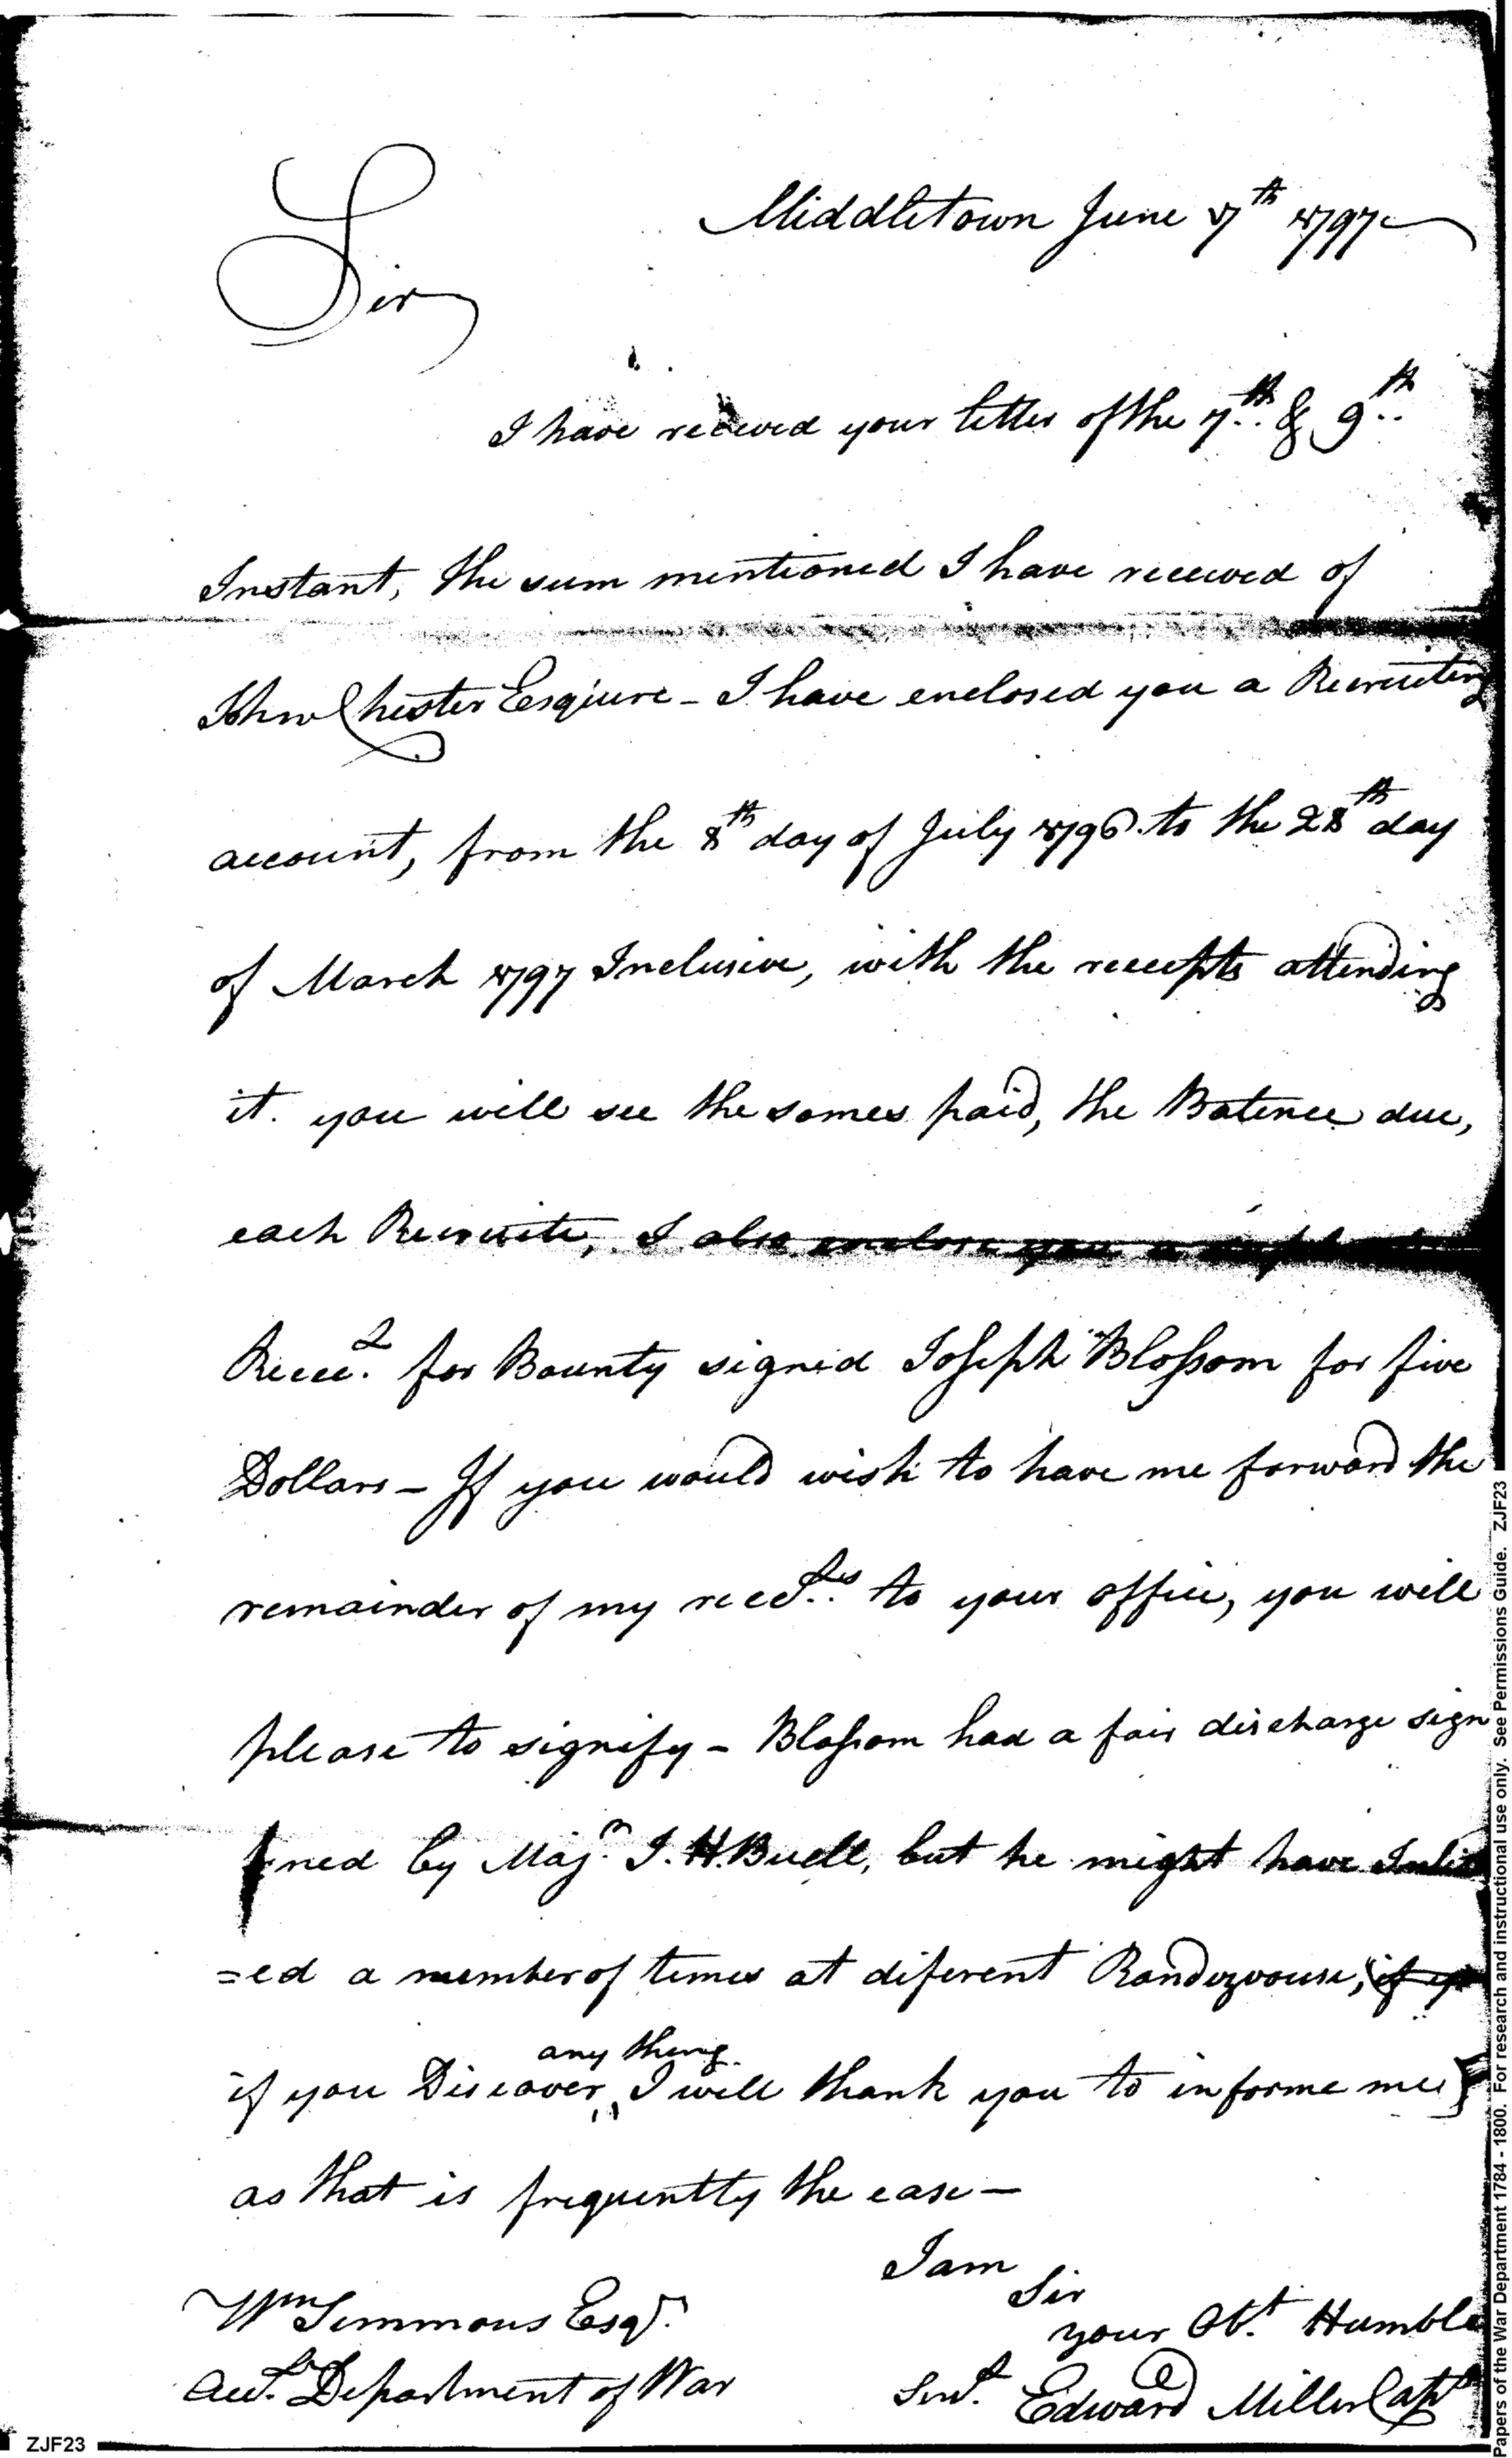 Middletown June 7th 1797
Sir
I have received your letter of the 7th & 9th
Instant, the sum mentioned I have received of
John Chester Esquire - I have enclosed you a Recruiting
account, from the 8th day of July 1796. to the 28th day
of March 1797 Inclusive, with the receepts attending
it. you will see the somes paid, the Balence due,
each Recruite, I also enclose you a
Recee.d for Bounty signed Joseph Blossom for five
Dollars - If you would wish to have me forward the
remainder of my recd.ts to your office, you will
please to signify - Blossom had a fair discharge sign
ned by Majr. J. H. Buell, but he might have Inlist
=ed a number of times at diferent Randezvouse, if
any thing
if you Discover, I will thank you to informe me
as that is frequently the case -
I am
Sir
your Obt. Humble
Servt. Edward Miller Capt
Wm Simmons Esqr.
Acct. Department of War
ZJF23
Papers of the War Department 1784 - 1800. For research and instructional use only. See Permissions Guide. ZJF23